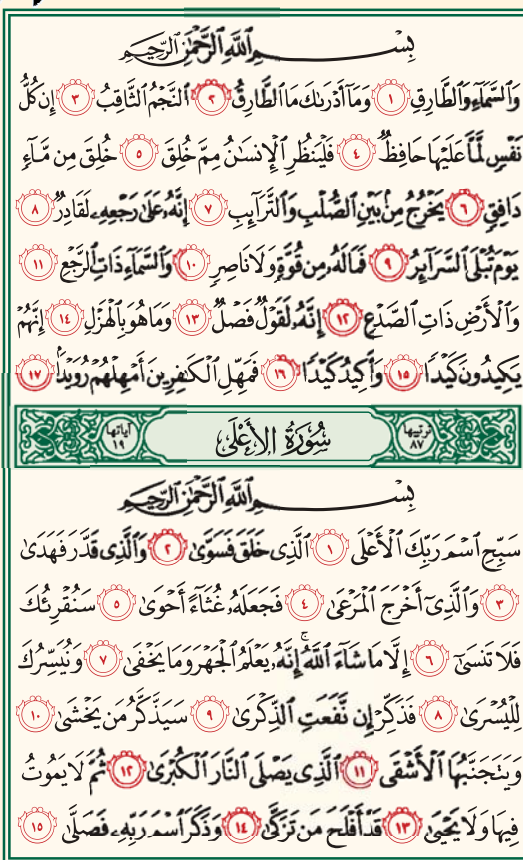 بِسْمِ ٱللَّهِ ٱلرَّحْمَٰنِ ٱلرَّحِيمِ
وَٱلسَّمَآءِ وَٱلطَّارِقِ ١ وَمَآ أَدْرَىٰكَ مَا ٱلطَّارِقُ ٢ ٱلنَّجْمُ ٱلثَّاقِبُ ٣ إِن كُلُّ
نَفْسٍ لَّمَّا عَلَيْهَا حَافِظٌ ٤ فَلْيَنظُرِ ٱلْإِنسَٰنُ مِمَّ خُلِقَ ٥ خُلِقَ مِن مَّآءٍ
دَافِقٍ ٦ يَخْرُجُ مِنۢ بَيْنِ ٱلصُّلْبِ وَٱلتَّرَآئِبِ ٧ إِنَّهُۥ عَلَىٰ رَجْعِهِۦ لَقَادِرٌ ٨
يَوْمَ تُبْلَى ٱلسَّرَآئِرُ ٩ فَمَا لَهُۥ مِن قُوَّةٍ وَلَا نَاصِرٍ ١٠ وَٱلسَّمَآءِ ذَاتِ ٱلرَّجْعِ ١١
وَٱلْأَرْضِ ذَاتِ ٱلصَّدْعِ ١٢ إِنَّهُۥ لَقَوْلٌ فَصْلٌ ١٣ وَمَا هُوَ بِٱلْهَزْلِ ١٤ إِنَّهُمْ
يَكِيدُونَ كَيْدًا ١٥ وَأَكِيدُ كَيْدًا ١٦ فَمَهِّلِ ٱلْكَٰفِرِينَ أَمْهِلْهُمْ رُوَيْدًۢا ١٧
ترتيبها ٨٧ سُورَةُ الأَعْلَى آياتها ١٩
بِسْمِ ٱللَّهِ ٱلرَّحْمَٰنِ ٱلرَّحِيمِ
سَبِّحِ ٱسْمَ رَبِّكَ ٱلْأَعْلَى ١ ٱلَّذِى خَلَقَ فَسَوَّىٰ ٢ وَٱلَّذِى قَدَّرَ فَهَدَىٰ
٣ وَٱلَّذِىٓ أَخْرَجَ ٱلْمَرْعَىٰ ٤ فَجَعَلَهُۥ غُثَآءً أَحْوَىٰ ٥ سَنُقْرِئُكَ
فَلَا تَنسَىٰٓ ٦ إِلَّا مَا شَآءَ ٱللَّهُ ۚ إِنَّهُۥ يَعْلَمُ ٱلْجَهْرَ وَمَا يَخْفَىٰ ٧ وَنُيَسِّرُكَ
لِلْيُسْرَىٰ ٨ فَذَكِّرْ إِن نَّفَعَتِ ٱلذِّكْرَىٰ ٩ سَيَذَّكَّرُ مَن يَخْشَىٰ ١٠
وَيَتَجَنَّبُهَا ٱلْأَشْقَى ١١ ٱلَّذِى يَصْلَى ٱلنَّارَ ٱلْكُبْرَىٰ ١٢ ثُمَّ لَا يَمُوتُ
فِيهَا وَلَا يَحْيَىٰ ١٣ قَدْ أَفْلَحَ مَن تَزَكَّىٰ ١٤ وَذَكَرَ ٱسْمَ رَبِّهِۦ فَصَلَّىٰ ١٥